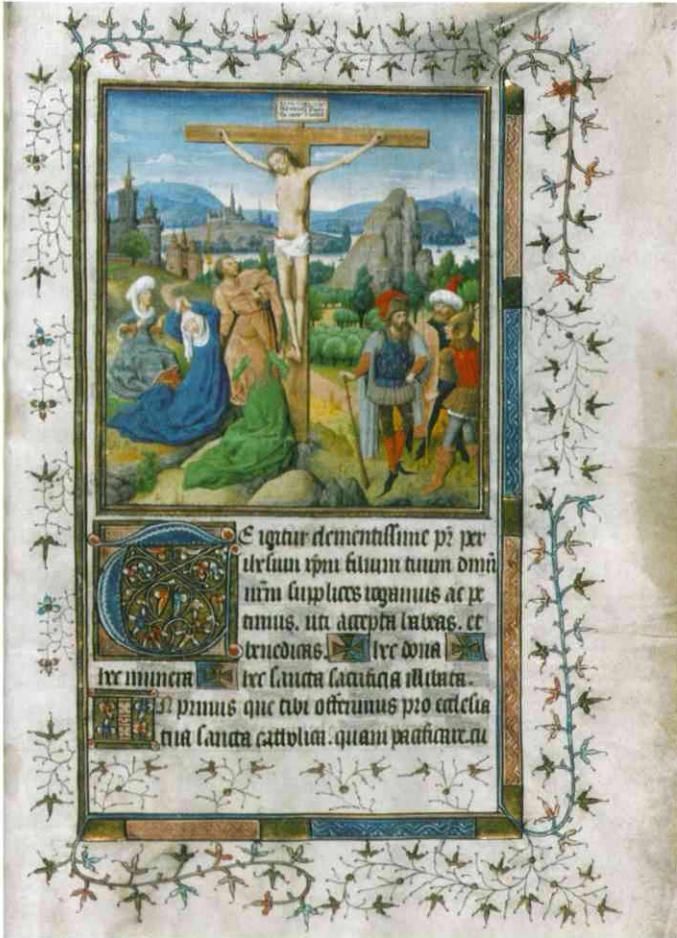 TE igitur clementissime pr̄ per
ihesum xp̄m filium tuum dn̄m
nr̄m supplices rogamus ac pe
timus. uti accepta habeas. et
benedicas. ✠ hec dona ✠
hec munera ✠ hec sancta sacrificia illibata.
IN primis que tibi offerimus pro ecclesia
tua sancta catholica. quam pacificare. cu